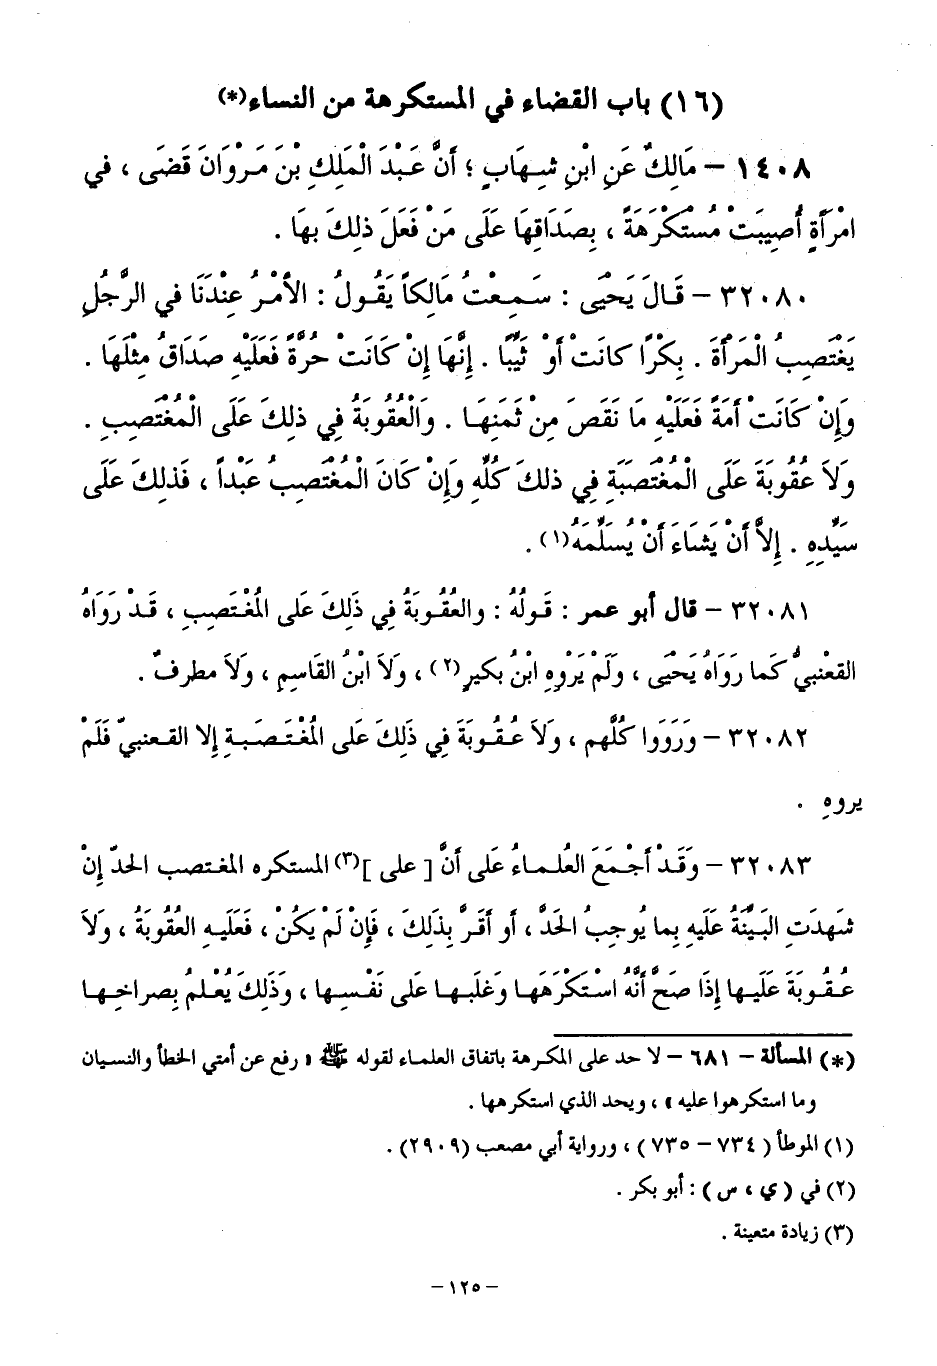 (١٦) باب القضاء في المستكرهة من النساء(*)
١٤٠٨ – مَالِكٌ عَنِ ابْنِ شِهَابٍ ؛ أَنَّ عَبْدَ الْمَلِكِ بْنَ مَرْوَانَ قَضَى ، فِي
امْرَأَةٍ أُصِيبَتْ مُسْتَكْرَهَةً ، بِصَدَاقِهَا عَلَى مَنْ فَعَلَ ذلِكَ بِهَا .
٣٢٠٨٠ – قَالَ يَحْيَى : سَمِعْتُ مَالِكاً يَقُولُ : الأَمْرُ عِنْدَنَا فِي الرَّجُلِ
يَغْتَصِبُ الْمَرْأَةَ . بِكْرًا كَانَتْ أَوْ ثَيِّبًا . إِنَّهَا إِنْ كَانَتْ حُرَّةً فَعَلَيْهِ صَدَاقُ مِثْلِهَا .
وَإِنْ كَانَتْ أَمَةً فَعَلَيْهِ مَا نَقَصَ مِنْ ثَمَنِهَا . وَالْعُقُوبَةُ فِي ذلِكَ عَلَى الْمُغْتَصِبِ .
وَلاَ عُقُوبَةَ عَلَى الْمُغْتَصَبَةِ فِي ذلِكَ كُلِّهِ وَإِنْ كَانَ الْمُغْتَصِبُ عَبْداً ، فَذلِكَ عَلَى
سَيِّدِهِ . إِلاَّ أَنْ يَشَاءَ أَنْ يُسَلِّمَهُ(١) .
٣٢٠٨١ – قال أبو عمر : قَولُهُ : والعُقُوبَةُ فِي ذَلِكَ عَلى المُغْتَصِبِ ، قَدْ رَوَاهُ
القعْنبيُّ كَما رَوَاهُ يَحْيَى ، وَلَمْ يَرْوِهِ ابْنُ بكيرٍ(٢) ، وَلاَ ابْنُ القَاسِمِ ، وَلاَ مطرفٌ .
٣٢٠٨٢ – وَرَوَوا كُلُّهم ، وَلاَ عُقُوبَةَ فِي ذَلِكَ عَلى المُغْتَصَبةِ إلا القعنبيّ فَلَمْ
يروهِ .
٣٢٠٨٣ – وَقَدْ أَجْمَعَ العُلماءُ عَلى أَنَّ [ على ](٣) المستكره المغتصب الحدّ إِنْ
شهدَتِ البَيِّنَةُ عَلَيهِ بِما يُوجِبُ الحَدَّ ، أو أقَرَّ بِذَلِكَ ، فَإِنْ لَمْ يكُن ، فَعَلَيهِ العُقُوبَةُ ، وَلاَ
عُقُوبَةَ عَلَيها إِذَا صَحَّ أَنَّهُ اسْتكْرَهَها وَغلَبها عَلى نَفْسِها ، وَذَلِكَ يُعْلَمُ بِصراخِها
(*) المسألة – ٦٨١ – لا حد على المكرهة باتفاق العلماء لقوله ﷺ « رفع عن أمتي الخطأ والنسيان
وما استكرهوا عليه » ، ويحد الذي استكرهها .
(١) الموطأ ( ٧٣٤ – ٧٣٥ ) ، ورواية أبي مصعب (٢٩٠٩) .
(٢) في ( ي ، س ) : أبو بكر .
(٣) زيادة متعينة .
– ١٢٥ –